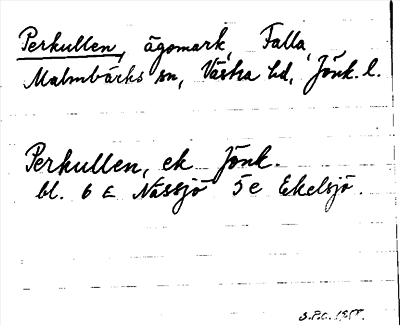 Perkullen, ägomark, Falla,
Malmbäcks sn, Västra hd, Jönk. l.
Perkullen, ek Jönk.
bl. 6 E Nässjö 5 e Ekelsjö.